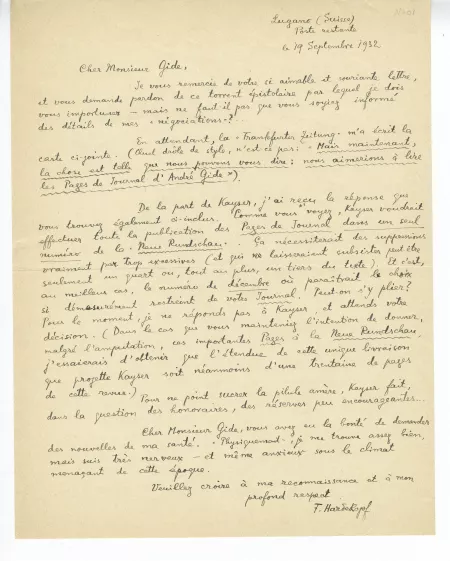 Lugano (Suisse)
Poste restante
le 19 Septembre 1932
Cher Monsieur Gide,
Je vous remercie de votre si aimable et souriante lettre,
et vous demande pardon de ce torrent épistolaire par lequel je dois
vous importuner – mais ne faut-il pas que vous soyiez informé
des détails de mes « négociations » ?...
En attendant, la « Frankfurter Zeitung » m'a écrit la
carte ci-jointe. (Quel drôle de style, n'est-ce pas : « Mais maintenant,
la chose est telle que nous pouvons vous dire : nous aimerions à lire
les Pages de Journal d'André Gide ».)
De la part de Kayser, j'ai reçu la réponse que
vous trouvez également ci-inclus. Comme vous voyez, Kayser voudrait
effectuer toute la publication des Pages de Journal dans un seul
numéro de la « Neue Rundschau ». Ça nécessiterait des suppressions
vraiment par trop excessives (et qui ne laisseraient subsister peut-être
seulement un quart ou, tout au plus, un tiers du texte). Et c'est,
au meilleur cas, le numéro de décembre où paraîtrait le choix
si démesurément restreint de votre Journal. Peut-on s'y plier ?
Pour le moment, je ne réponds pas à Kayser et attends votre
décision. (Dans le cas que vous mainteniez l'intention de donner,
malgré l'amputation, ces importantes Pages à la Neue Rundschau
j'essaierais d'obtenir que l'étendue de cette unique livraison
que projette Kayser soit néanmoins d'une trentaine de pages
de cette revue.)
Pour ne point sucrer la pilule amère, Kayser fait,
dans la question des honoraires, des réserves peu encourageantes...
Cher Monsieur Gide, vous avez eu la bonté de demander
des nouvelles de ma santé. « Physiquement » je me trouve assez bien,
mais suis très nerveux – et même anxieux sous le climat
menaçant de cette époque.
Veuillez croire à ma reconnaissance et à mon
profond respect
F. Hardekopf